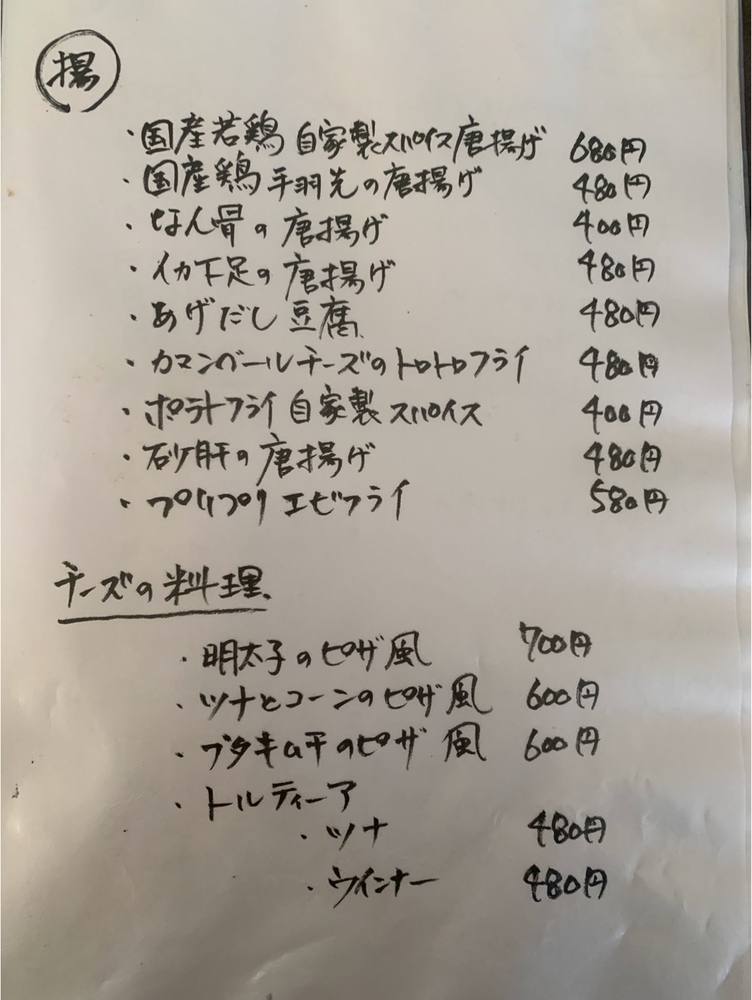 揚
・国産若鶏 自家製スパイス唐揚げ 680円
・国産鶏 手羽先の唐揚げ 480円
・なん骨の唐揚げ 400円
・イカ下足の唐揚げ 480円
・あげだし豆腐 480円
・カマンベールチーズのトロトロフライ 480円
・ポテトフライ 自家製スパイス 400円
・砂肝の唐揚げ 480円
・プリプリエビフライ 580円
チーズの料理
・明太子のピザ風 700円
・ツナとコーンのピザ風 600円
・ブタキムチのピザ風 600円
・トルティーア
・ツナ 480円
・ウインナー 480円